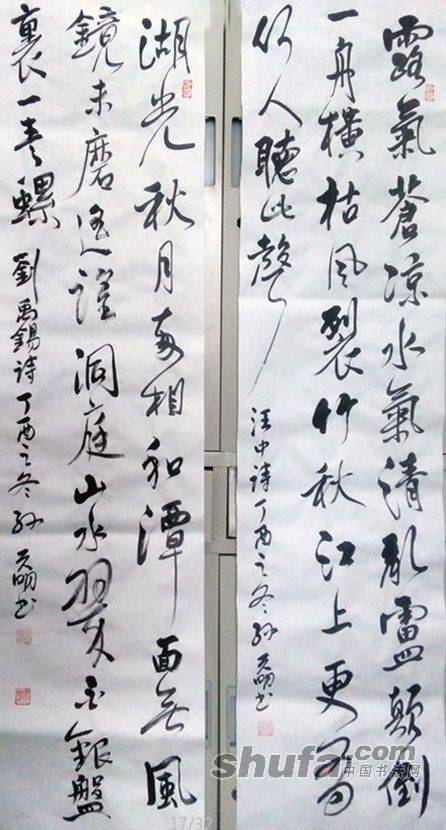 露氣蒼涼水氣清盧顛倒
一舟橫枯風裂竹秋江上更
何人聽此聲 汪中詩丁酉之冬孫明書
湖光秋月兩相和潭面無風
鏡未磨遙望洞庭山水翠白銀盤
裏一青螺 劉禹錫詩丁酉之冬孫明書
shufa.com
中国书法网
17/32